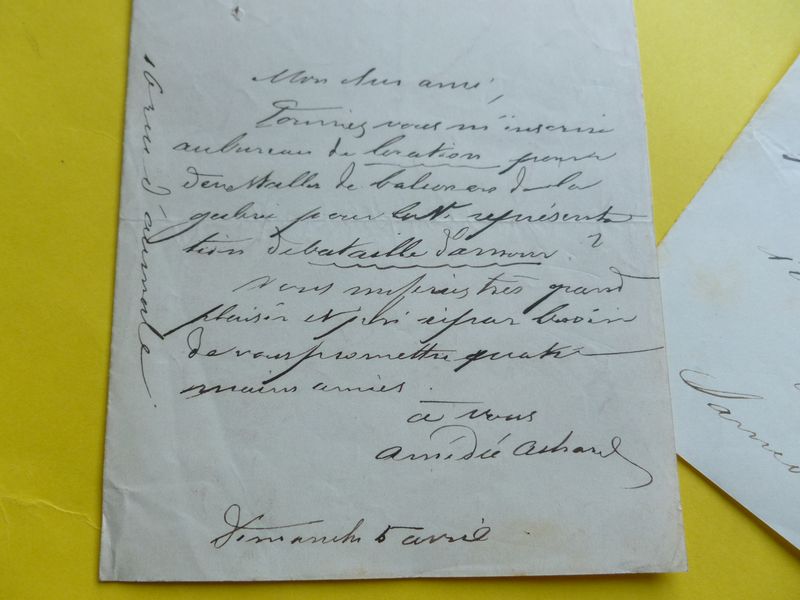 Mon cher ami,
Pourriez vous m'inscrire
au bureau de location pour
deux stalles de balcon ou de la
galerie pour la 1re représenta
tion de bataille d'amour ?
Vous me feriez très grand
plaisir et je n'ai pas besoin
de vous promettre quatre
mains amies.
à vous
Amédée Achard
Dimanche 5 avril
16 rue d'aumale
Samed